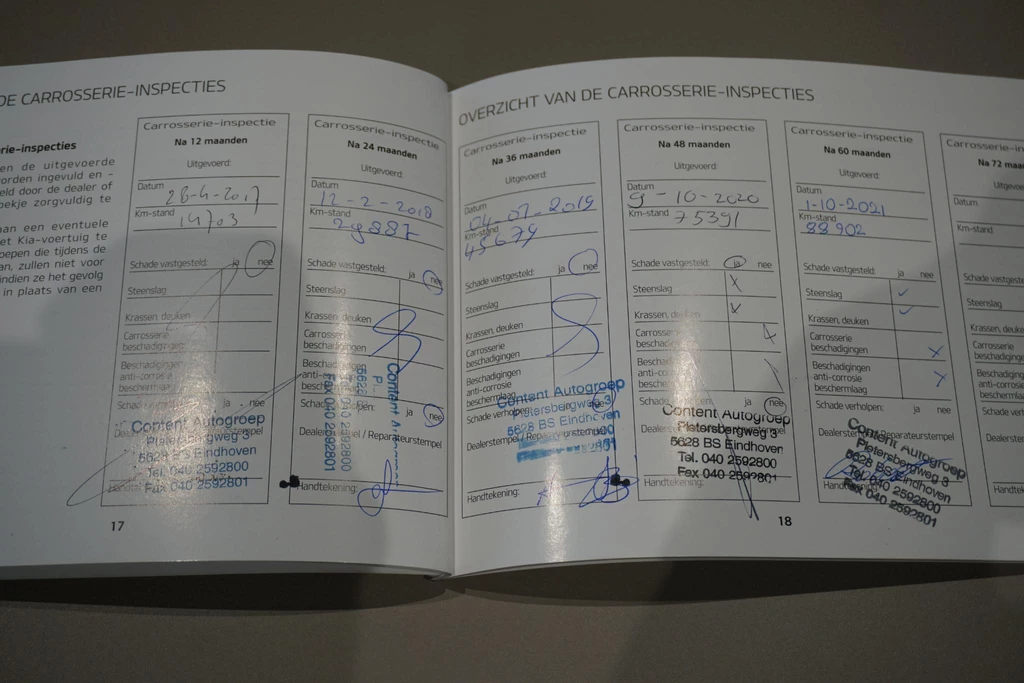 DE CARROSSERIE-INSPECTIES
rie-inspecties
en de uitgevoerde
orden ingevuld en -
eld door de dealer of
oekje zorgvuldig te
aan een eventuele
et Kia-voertuig te
oepen die tijdens de
an, zullen niet voor
indien ze het gevolg
in plaats van een
Carrosserie-inspectie
Na 12 maanden
Uitgevoerd:
Datum
28-4-2017
Km-stand
14703
Schade vastgesteld: ja nee
Steenslag
Krassen, deuken
Carrosserie
beschadigingen
Beschadigingen
anti-corrosie
beschermlaag
Content Autogroep
Pietersbergweg 3
5628 BS Eindhoven
Tel. 040 2592800
Fax 040 2592801
17
Carrosserie-inspectie
Na 24 maanden
Uitgevoerd:
Datum
12-2-2018
Km-stand
29887
Schade vastgesteld: ja nee
Steenslag
Krassen, deuken
nee
Dealerstempel / Reparateurstempel
Content
5628
040 2592800
Fax 040 2592801
Handtekening:
OVERZICHT VAN DE CARROSSERIE-INSPECTIES
Carrosserie-inspectie
Na 36 maanden
Uitgevoerd:
Datum
04-07-2019
Km-stand
45679
Schade vastgesteld: ja nee
Steenslag
Krassen, deuken
Carrosserie
beschadigingen
Beschadigingen
anti-corrosie
beschermlaag
Schade verholpen:
Content Autogroep
Pietersbergweg 3
5628 BS Eindhoven
Handtekening:
Carrosserie-inspectie
Na 48 maanden
Uitgevoerd:
Datum
9-10-2020
Km-stand
75391
Schade vastgesteld: ja nee
Steenslag x
Krassen, deuken x
Carrosserie
beschadigingen x
Schade verholpen: ja nee
Content Autogroep
Pietersbergweg 3
5628 BS Eindhoven
Tel. 040 2592800
Fax 040 2592801
Handtekening:
18
Carrosserie-inspectie
Na 60 maanden
Uitgevoerd:
Datum
1-10-2021
Km-stand
88902
Schade vastgesteld: ja nee
Steenslag
Krassen, deuken
Carrosserie
beschadigingen x
Beschadigingen
anti-corrosie x
beschermlaag
Schade verholpen: ja nee
Content Autogroep
Pietersbergweg 3
5628 BS Eindhoven
Tel. 040 2592800
Fax 040 2592801
Carrosserie-in
Na 72 maa
Uitgevoe
Datum
Km-stand
Schade vastgest
Steenslag
Krassen, deuken
Carrosserie
beschadigingen
Beschadigingen
anti-corrosie
beschermlaag
Schade verho
Dealerstempe
Handtekenin